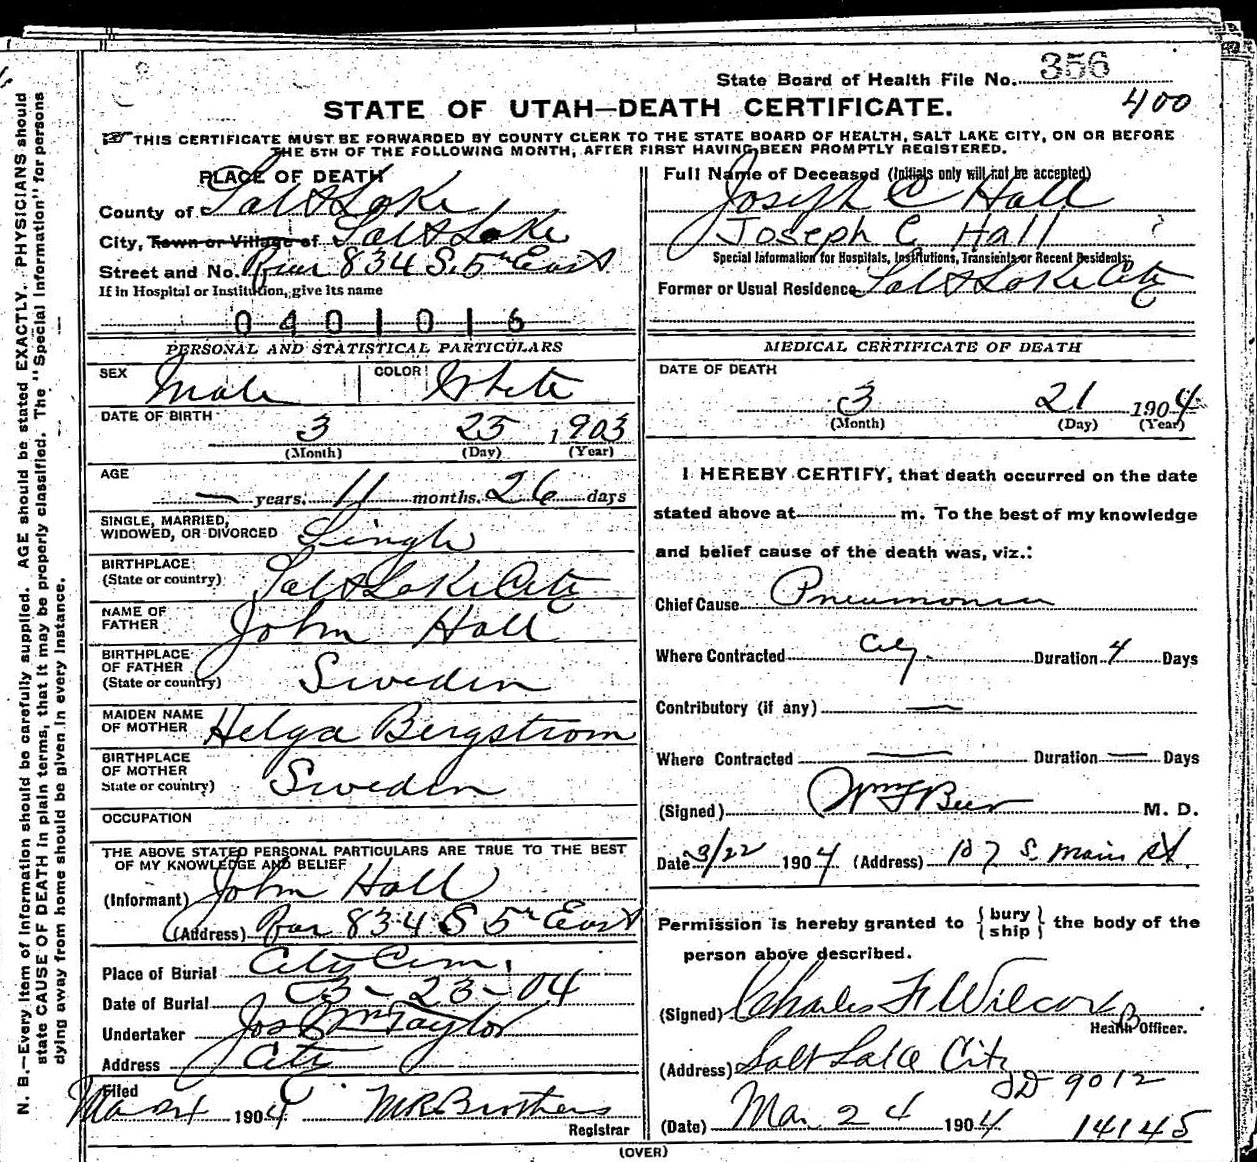 State Board of Health File No. 356
400
STATE OF UTAH—DEATH CERTIFICATE.
THIS CERTIFICATE MUST BE FORWARDED BY COUNTY CLERK TO THE STATE BOARD OF HEALTH, SALT LAKE CITY, ON OR BEFORE
THE 5TH OF THE FOLLOWING MONTH, AFTER FIRST HAVING BEEN PROMPTLY REGISTERED.
PLACE OF DEATH
County of Salt Lake
City, Town or Village of Salt Lake
Street and No. Rear 834 S. 5th East
If in Hospital or Institution, give its name
0401016
Full Name of Deceased (Initials only will not be accepted)
Joseph C Hall
Joseph C Hall ?
Special Information for Hospitals, Institutions, Transients or Recent Residents:
Former or Usual Residence Salt Lake City
PERSONAL AND STATISTICAL PARTICULARS
SEX Male COLOR White
DATE OF BIRTH
3 25 1903
(Month) (Day) (Year)
AGE
— years. 11 months. 26 days
SINGLE, MARRIED,
WIDOWED, OR DIVORCED Single
BIRTHPLACE
(State or country) Salt Lake City
NAME OF
FATHER John Hall
BIRTHPLACE
OF FATHER
(State or country) Sweden
MAIDEN NAME
OF MOTHER Helga Bergstrom
BIRTHPLACE
OF MOTHER
State or country) Sweden
OCCUPATION
THE ABOVE STATED PERSONAL PARTICULARS ARE TRUE TO THE BEST
OF MY KNOWLEDGE AND BELIEF
(Informant) John Hall
(Address) Rear 834 S 5th East
Place of Burial City Cem.
Date of Burial 3-23-04
Undertaker Jos Wm Taylor
Address City
Filed
Mar 24 1904 M R Brothers
Registrar
MEDICAL CERTIFICATE OF DEATH
DATE OF DEATH
3 21 1904
(Month) (Day) (Year)
I HEREBY CERTIFY, that death occurred on the date
stated above at m. To the best of my knowledge
and belief cause of the death was, viz.:
Chief Cause Pneumonia
Where Contracted City. Duration 4 Days
Contributory (if any) —
Where Contracted — Duration — Days
(Signed) Wm F Beer M. D.
Date 3/22 1904 (Address) 107 S. Main St.
Permission is hereby granted to {bury
ship} the body of the
person above described.
(Signed) Charles F Wilcox
Health Officer.
(Address) Salt Lake City
JD 9012
(Date) Mar 24 1904 14145
(OVER)
N. B.—Every item of information should be carefully supplied. AGE should be stated EXACTLY. PHYSICIANS should
state CAUSE OF DEATH in plain terms, that it may be properly classified. The "Special Information" for persons
dying away from home should be given in every instance.